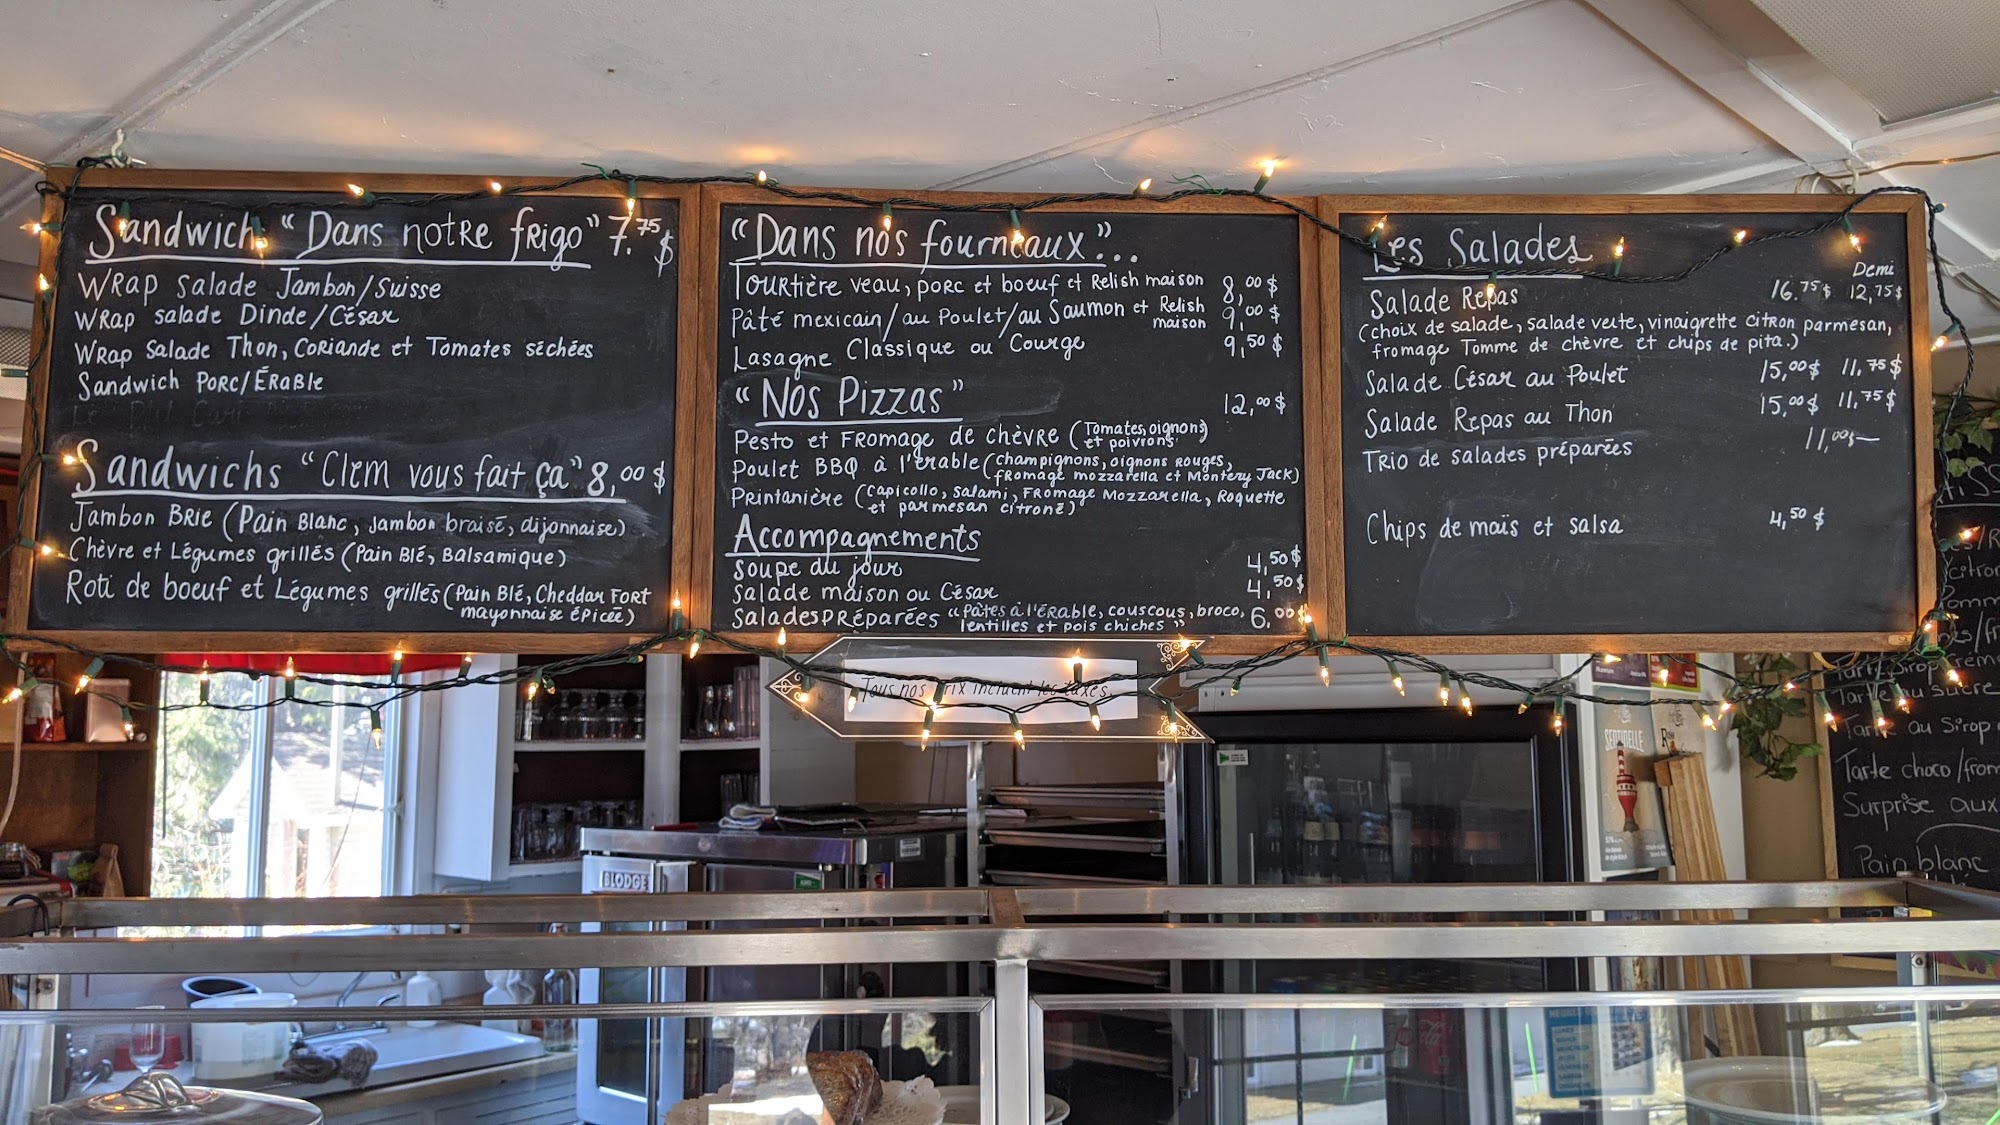 Sandwich "Dans notre frigo" 7.75$
Wrap salade Jambon/Suisse
Wrap salade Dinde/César
Wrap salade Thon, Coriande et Tomates séchées
Sandwich Porc/Érable
Sandwichs "Clem vous fait ça" 8,00$
Jambon Brie (Pain Blanc, jambon braisé, dijonnaise)
Chèvre et Légumes grillés (Pain Blé, Balsamique)
Roti de boeuf et Légumes grillés (Pain Blé, Cheddar Fort
mayonnaise épicée)
"Dans nos fourneaux"...
Tourtière veau, porc et boeuf et Relish maison 8,00$
Pâté mexicain/au Poulet/au Saumon et Relish maison 9,00$
Lasagne Classique ou Courge 9,50$
"Nos Pizzas" 12,00$
Pesto et Fromage de chèvre (Tomates, oignons
et poivrons)
Poulet BBQ à l'érable (champignons, oignons rouges,
fromage mozzarella et Monterey Jack)
Printanière (Capicollo, Salami, Fromage Mozzarella, Roquette
et parmesan citronné)
Accompagnements
Soupe du jour 4,50$
Salade maison ou César 4,50$
Salades préparées "Pâtes à l'érable, couscous, broco, 6,00$
lentilles et pois chiches"
Les Salades
Demi
Salade Repas 16.75$ 12,75$
(choix de salade, salade verte, vinaigrette citron parmesan,
fromage Tomme de chèvre et chips de pita.)
Salade César au Poulet 15,00$ 11,75$
Salade Repas au Thon 15,00$ 11,75$
Trio de salades préparées 11,00$
Chips de maïs et salsa 4,50$
Tous nos prix incluent les taxes.
BLODGE
SENTINELLE
Tarte au sucre
Tarte au Sirop
Tarte choco/from
Surprise aux
Pain blanc